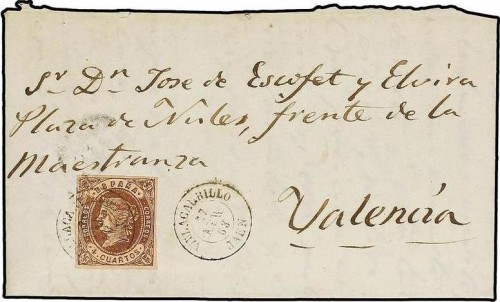 Sr. Dn. Jose de Escofet y Elvira
Plaza de Nules, frente de la
Maestranza
Valencia
ESPAÑA
4 CUARTOS
VILLACARRILLO
27
63
JAEN